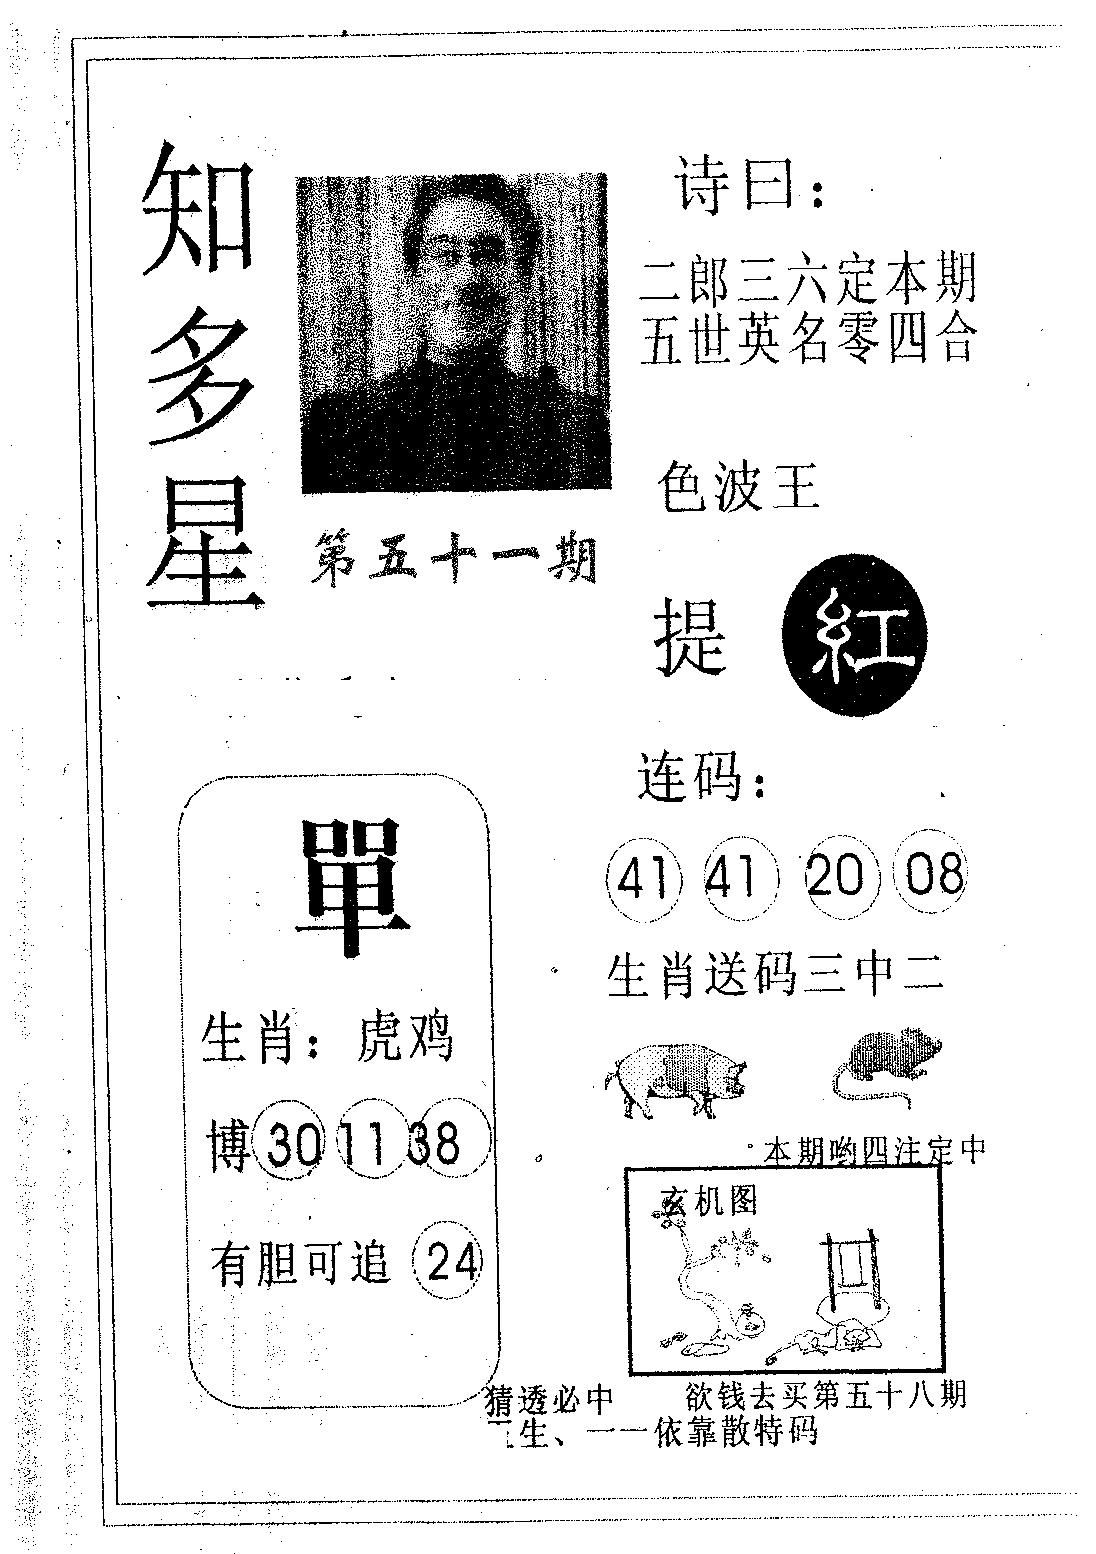 知多星
第五十一期
诗曰：
二郎三六定本期
五世英名零四合
色波王
提 紅
连码：
41 41 20 08
生肖送码三中二
單
生肖：虎鸡
博 30 11 38
有胆可追 24
本期哟四注定中
玄机图
猜透必中 欲钱去买第五十八期
生、一一依靠散特码